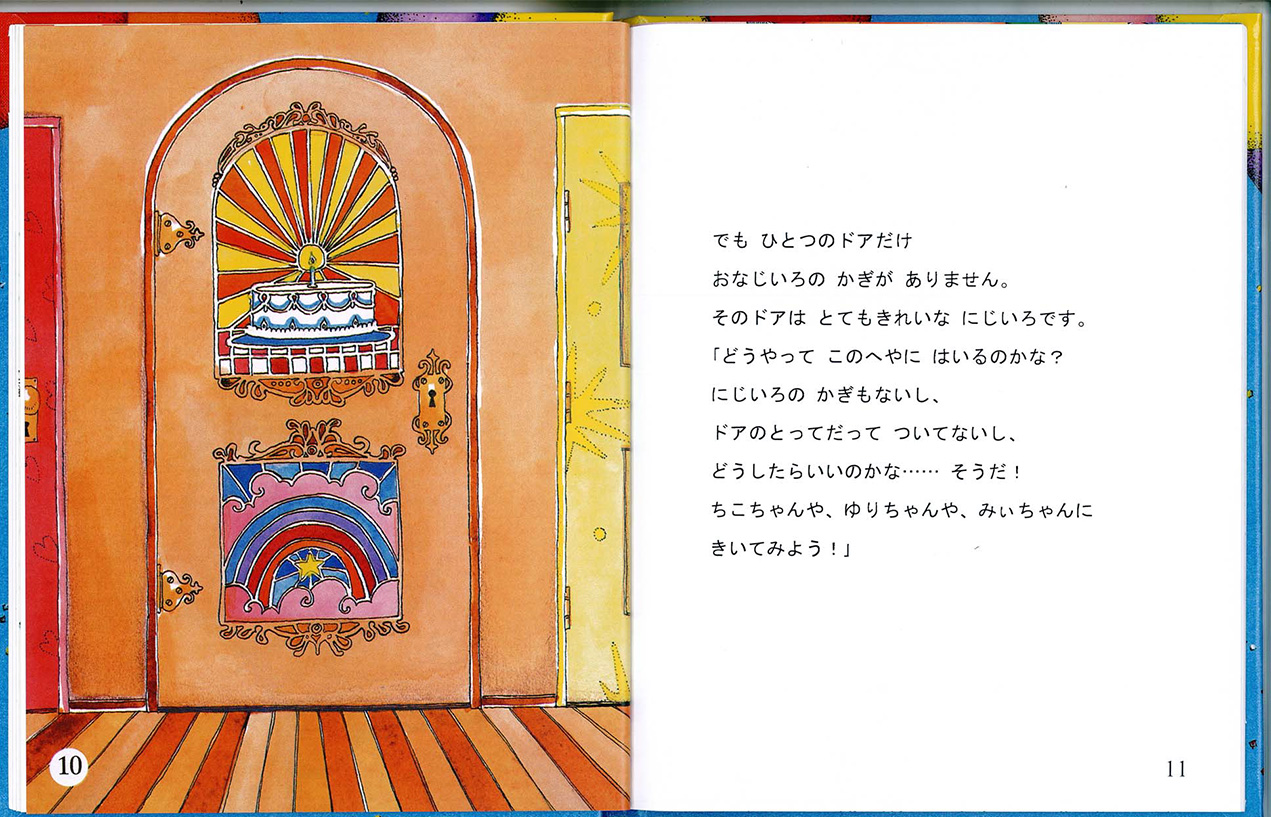 でも ひとつのドアだけ
おなじいろの かぎが ありません。
そのドアは とてもきれいな にじいろです。
「どうやって このへやに はいるのかな？
にじいろの かぎもないし、
ドアのとってだって ついてないし、
どうしたらいいのかな…… そうだ！
ちこちゃんや、ゆりちゃんや、みぃちゃんに
きいてみよう！」
10
11